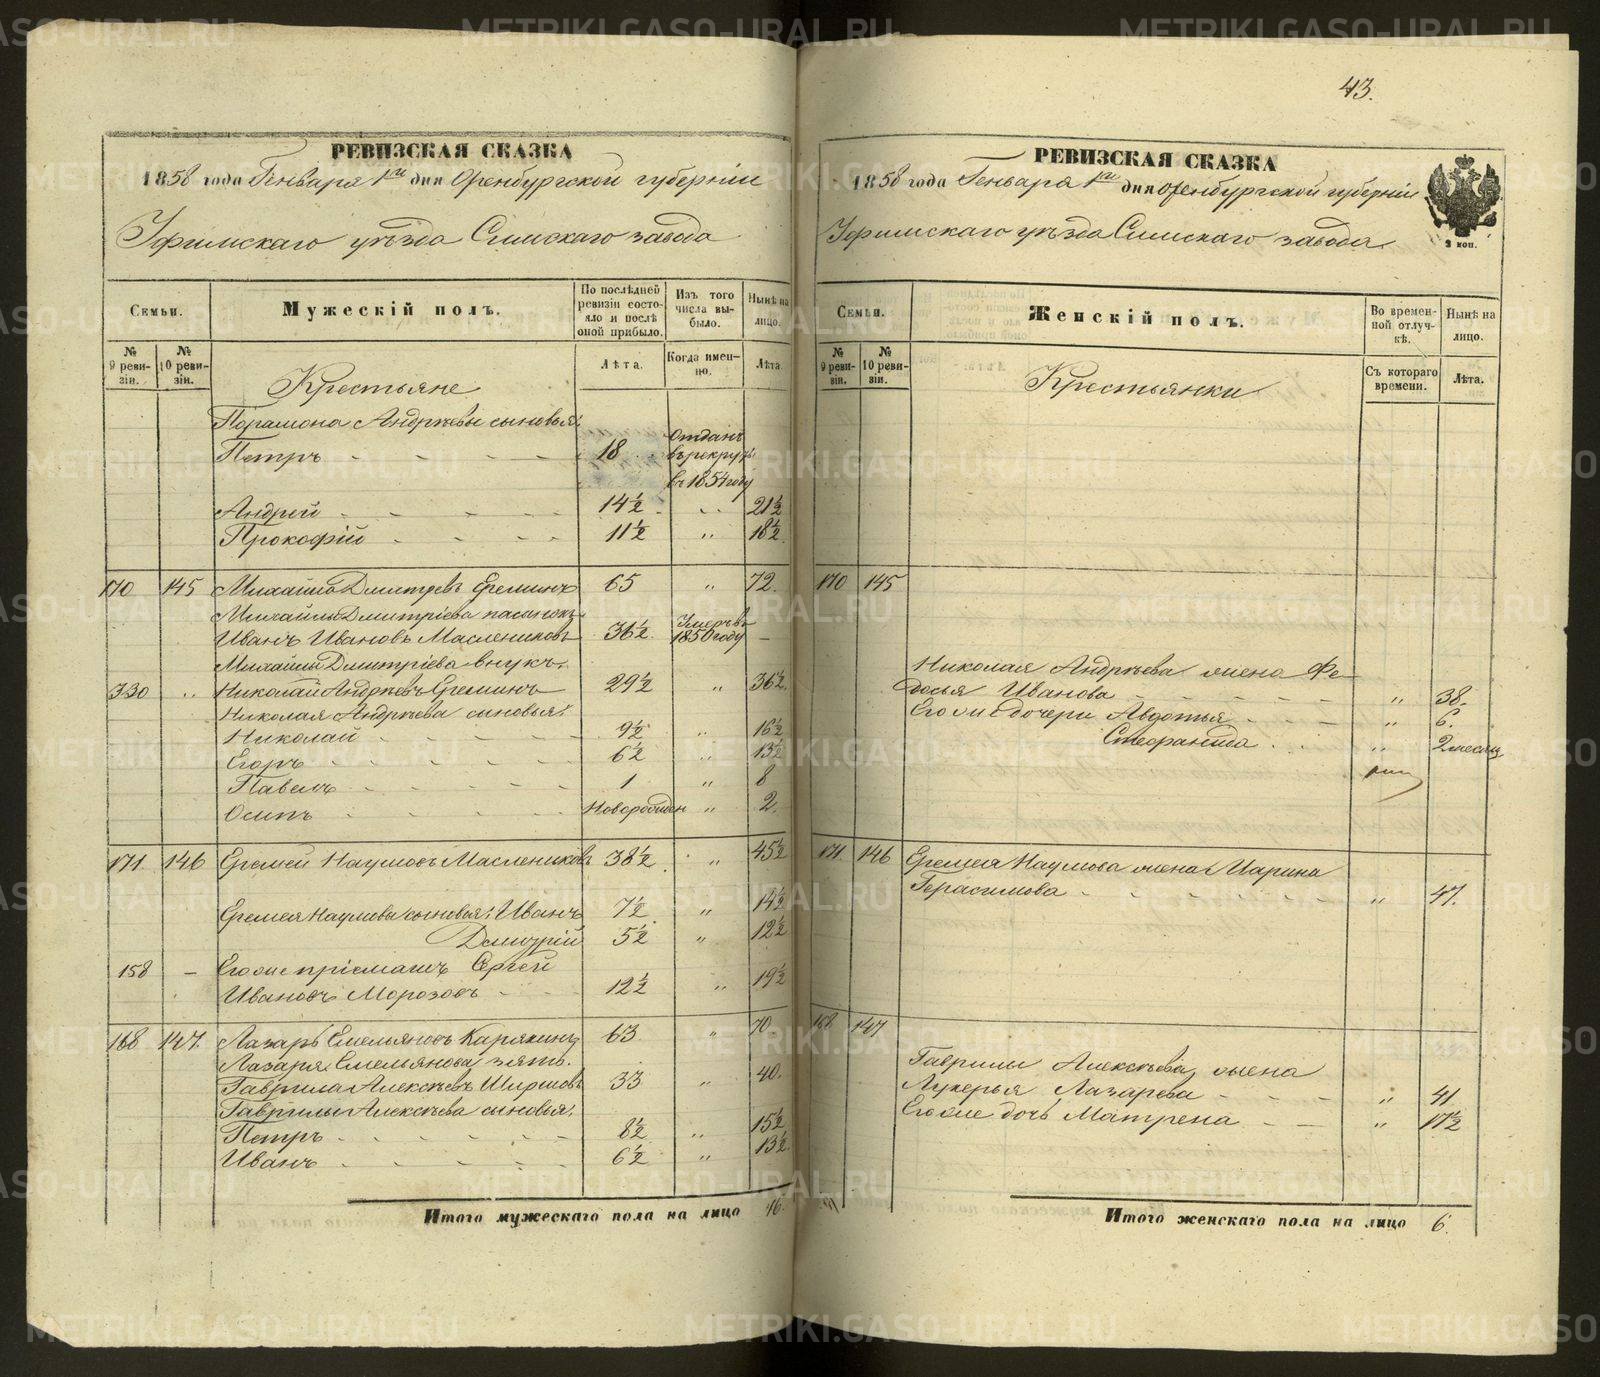 43.
РЕВИЗСКАЯ СКАЗКА
1858 года Генваря 1го дня Оренбургской губернiи
Уфимскаго уѣзда Симскаго завода
Семьи.
Мужескiй полъ.
По послѣдней ревизiи состояло и послѣ оной прибыло.
Изъ того числа выбыло.
Нынѣ на лицо.
№ 9 ревизiи.
№ 10 ревизiи.
Лѣта.
Когда именно.
Лѣта.
Крестьяне
Парамона Андрѣева сыновья:
Петръ 18 Отданъ въ рекруты въ 1854 году
Андрей 14½ " 21½
Прокофiй 11½ " 18½
170 145 Михайла Дмитрiевъ Ереминъ 65 " 72.
Михайлы Дмитрiева пасынокъ
Иванъ Ивановъ Маслениковъ 36½ Умеръ въ 1850 году —
Михайлы Дмитрiева внукъ
330 " Николай Андрѣевъ Ереминъ 29½ " 36½
Николая Андрѣева сыновья:
Николай 9½ " 16½
Егоръ 6½ " 13½
Павелъ 1 " 8
Осипъ Новорожден " 2.
171. 146 Еремей Наумовъ Маслениковъ 38½ " 45½
Еремея Наумова сыновья: Иванъ 7½ " 14½
Дмитрiй 5½ " 12½
158 — Его же прiемышъ Сергей
Ивановъ Морозовъ 12½ " 19½
168 147. Лазарь Емельяновъ Карякинъ 63 " 70.
Лазаря Емельянова зять.
Гаврила Алексѣевъ Ширшовъ 33 " 40.
Гаврилы Алексѣева сыновья:
Петръ 8½ " 15½
Иванъ 6½ " 13½
Итого мужескаго пола на лицо 16.
РЕВИЗСКАЯ СКАЗКА
1858 года Генваря 1го дня Оренбургской губернiи
Уфимскаго уѣзда Симскаго завода
Семьи.
Женскiй полъ.
Во временной отлучкѣ.
Нынѣ на лицо.
№ 9 ревизiи.
№ 10 ревизiи.
Съ котораго времени.
Лѣта.
Крестьянки
170 145
Николая Андрѣева жена Фе-
досья Иванова " 38.
Его же дочери Авдотья " 6.
Стефанида " 2 месяц
171. 146 Еремея Наумова жена Марина
Герасимова " 47.
168 147
Гаврилы Алексѣева жена
Лукерья Лазарева " 41
Его же дочь Матрена " 17½
Итого женскаго пола на лицо 6.
METRIKI.GASO-URAL.RU